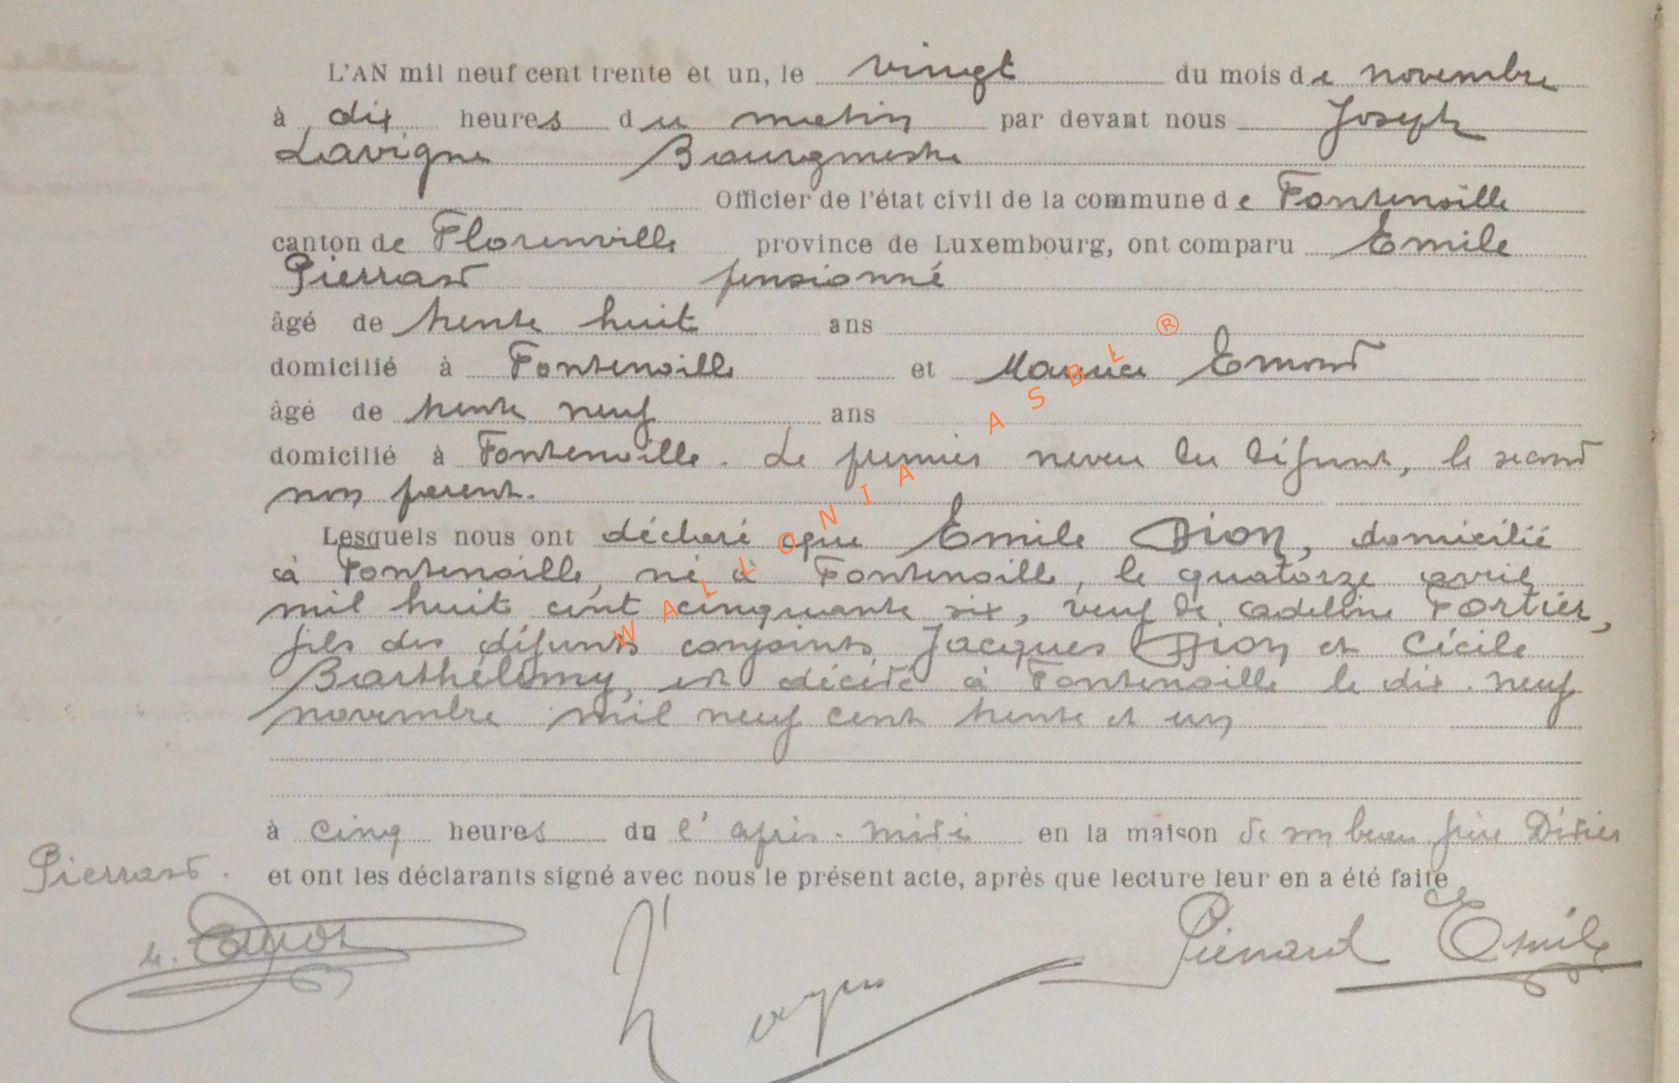 L'AN mil neuf cent trente et un, le vingt du mois de novembre
à dix heures du matin par devant nous Joseph
Lavigne Bourgmestre
Officier de l'état civil de la commune de Fontenoille
canton de Florenville province de Luxembourg, ont comparu Emile
Pierrard pensionné
âgé de trente huit ans
domicilié à Fontenoille et Maurice Emond
âgé de trente neuf ans
domicilié à Fontenoille. Le premier neveu du défunt, le second
non parent.
Lesquels nous ont déclaré que Emile Dion, domicilié
à Fontenoille, né à Fontenoille, le quatorze avril
mil huit cent cinquante six, veuf de Adeline Fortier,
fils des défunts conjoints Jacques Dion et Cécile
Barthélemy, est décédé à Fontenoille le dix-neuf
novembre mil neuf cent trente et un
à cinq heures du l'après-midi en la maison de son beau frère Didier
Pierrard.
et ont les déclarants signé avec nous le présent acte, après que lecture leur en a été faite
Pierrard Emile
WALLONIA ASBL ®